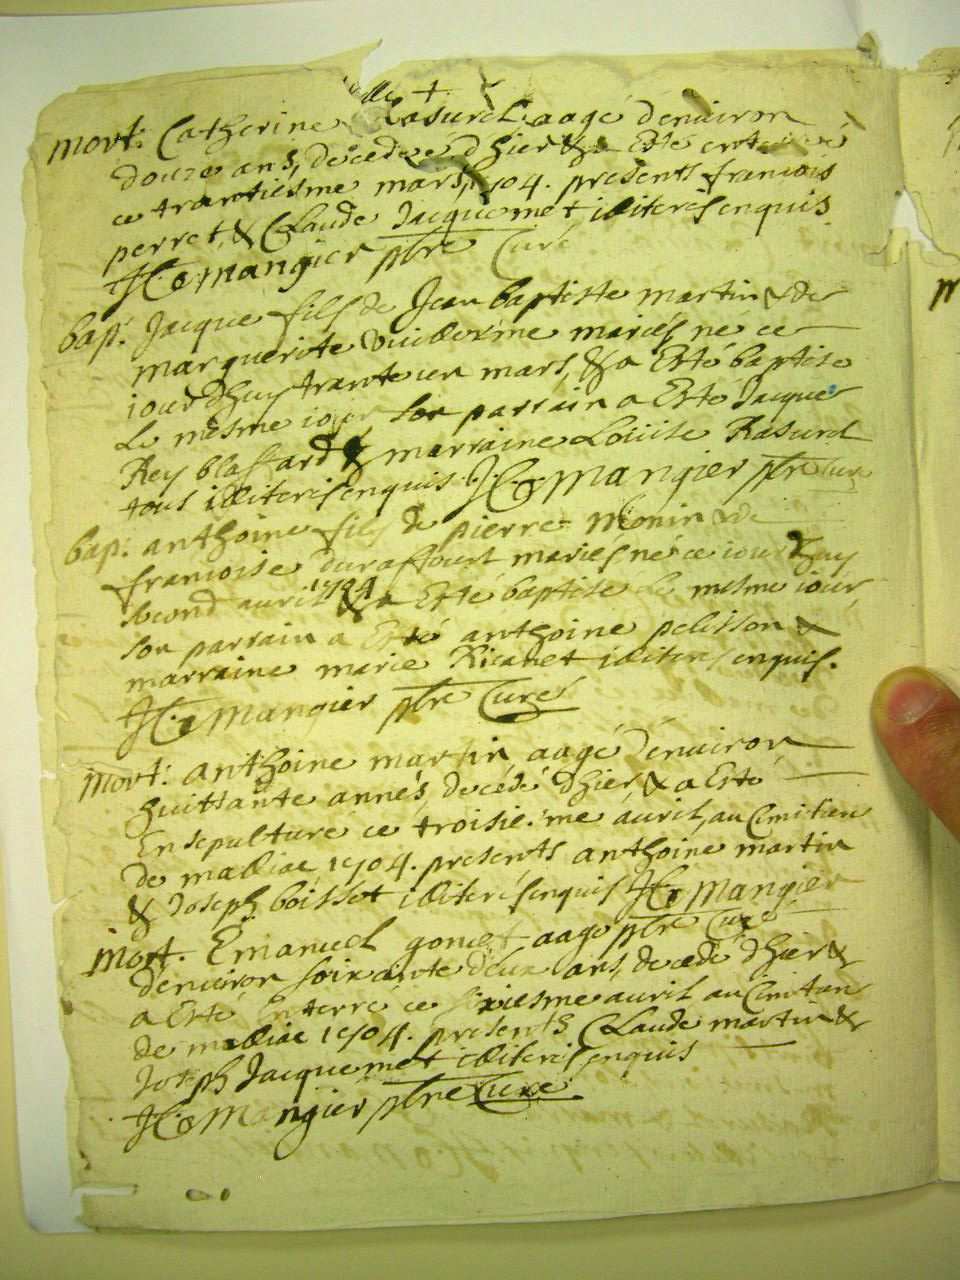 mort. Catherine Rasurel aagé d'enuiron
douze ans, decedeé d'hier & a Esté enterreé
ce trantiesme mars, 1704. presents francois
perret, & Claude Jacquemet illiterés enquis
JC Mangier pbre Curé
bap. Jacque fils de Jean baptiste martin & de
marguerite vuillerme mariés né ce
iourdhuy trante un mars, & a Esté baptise
le mesme iour son parrain a Esté Jacque
Rey blassard & marraine Loüise Rasurel
tous illiterés enquis. JC Mangier pbre Cure
bap: anthoine fils de pierre Monin & de
francoise duraffourt mariés né ce iourdhuy
second auril 1704 & a Esté baptise le mesme iour
son parrain a Esté anthoine pelisson &
marraine marie Ricanet illiterés enquis.
JC Mangier pbre Curé
mort: anthoine martin, aagé d'enuiron
huittante annés, decedé d'hier, & a Esté
Ensepulturé ce troisiesme auril, au Cimitiere
de malliac 1704. presents anthoine martin
& Joseph boissot illiterés enquis JC Mangier
pbre Cure
mort. Emanuel goncet, aage
d'enuiron soixante deux ans, decedé d'hier &
a Esté Enterre ce sixiesme auril au Cimitiere
de malliac 1704. presents Claude martin &
Joseph Jacquemet illiterés enquis
JC Mangier pbre Cure